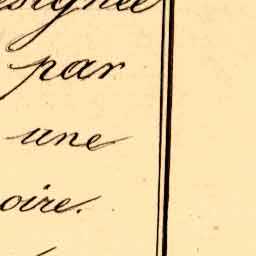 esignée
par
une
oire.